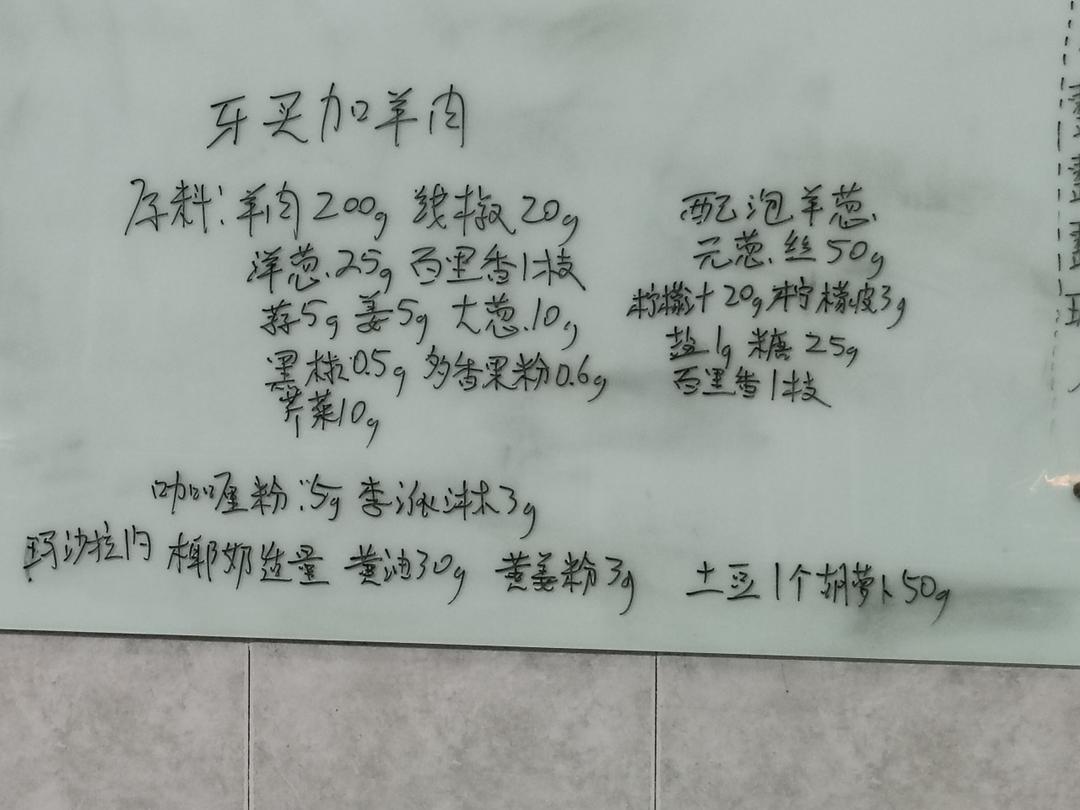 牙买加羊肉
原料:羊肉200g 线椒20g
洋葱25g 百里香1枝
蒜5g 姜5g 大葱10g
黑椒0.5g 多香果粉0.6g
芹菜10g
配泡羊葱
元葱丝50g
柠檬汁20g 柠檬皮3g
盐1g 糖25g
百里香1枝
咖喱粉:5g 李派淋3g
玛沙拉 椰奶适量 黄油30g 黄姜粉3g 土豆1个 胡萝卜50g